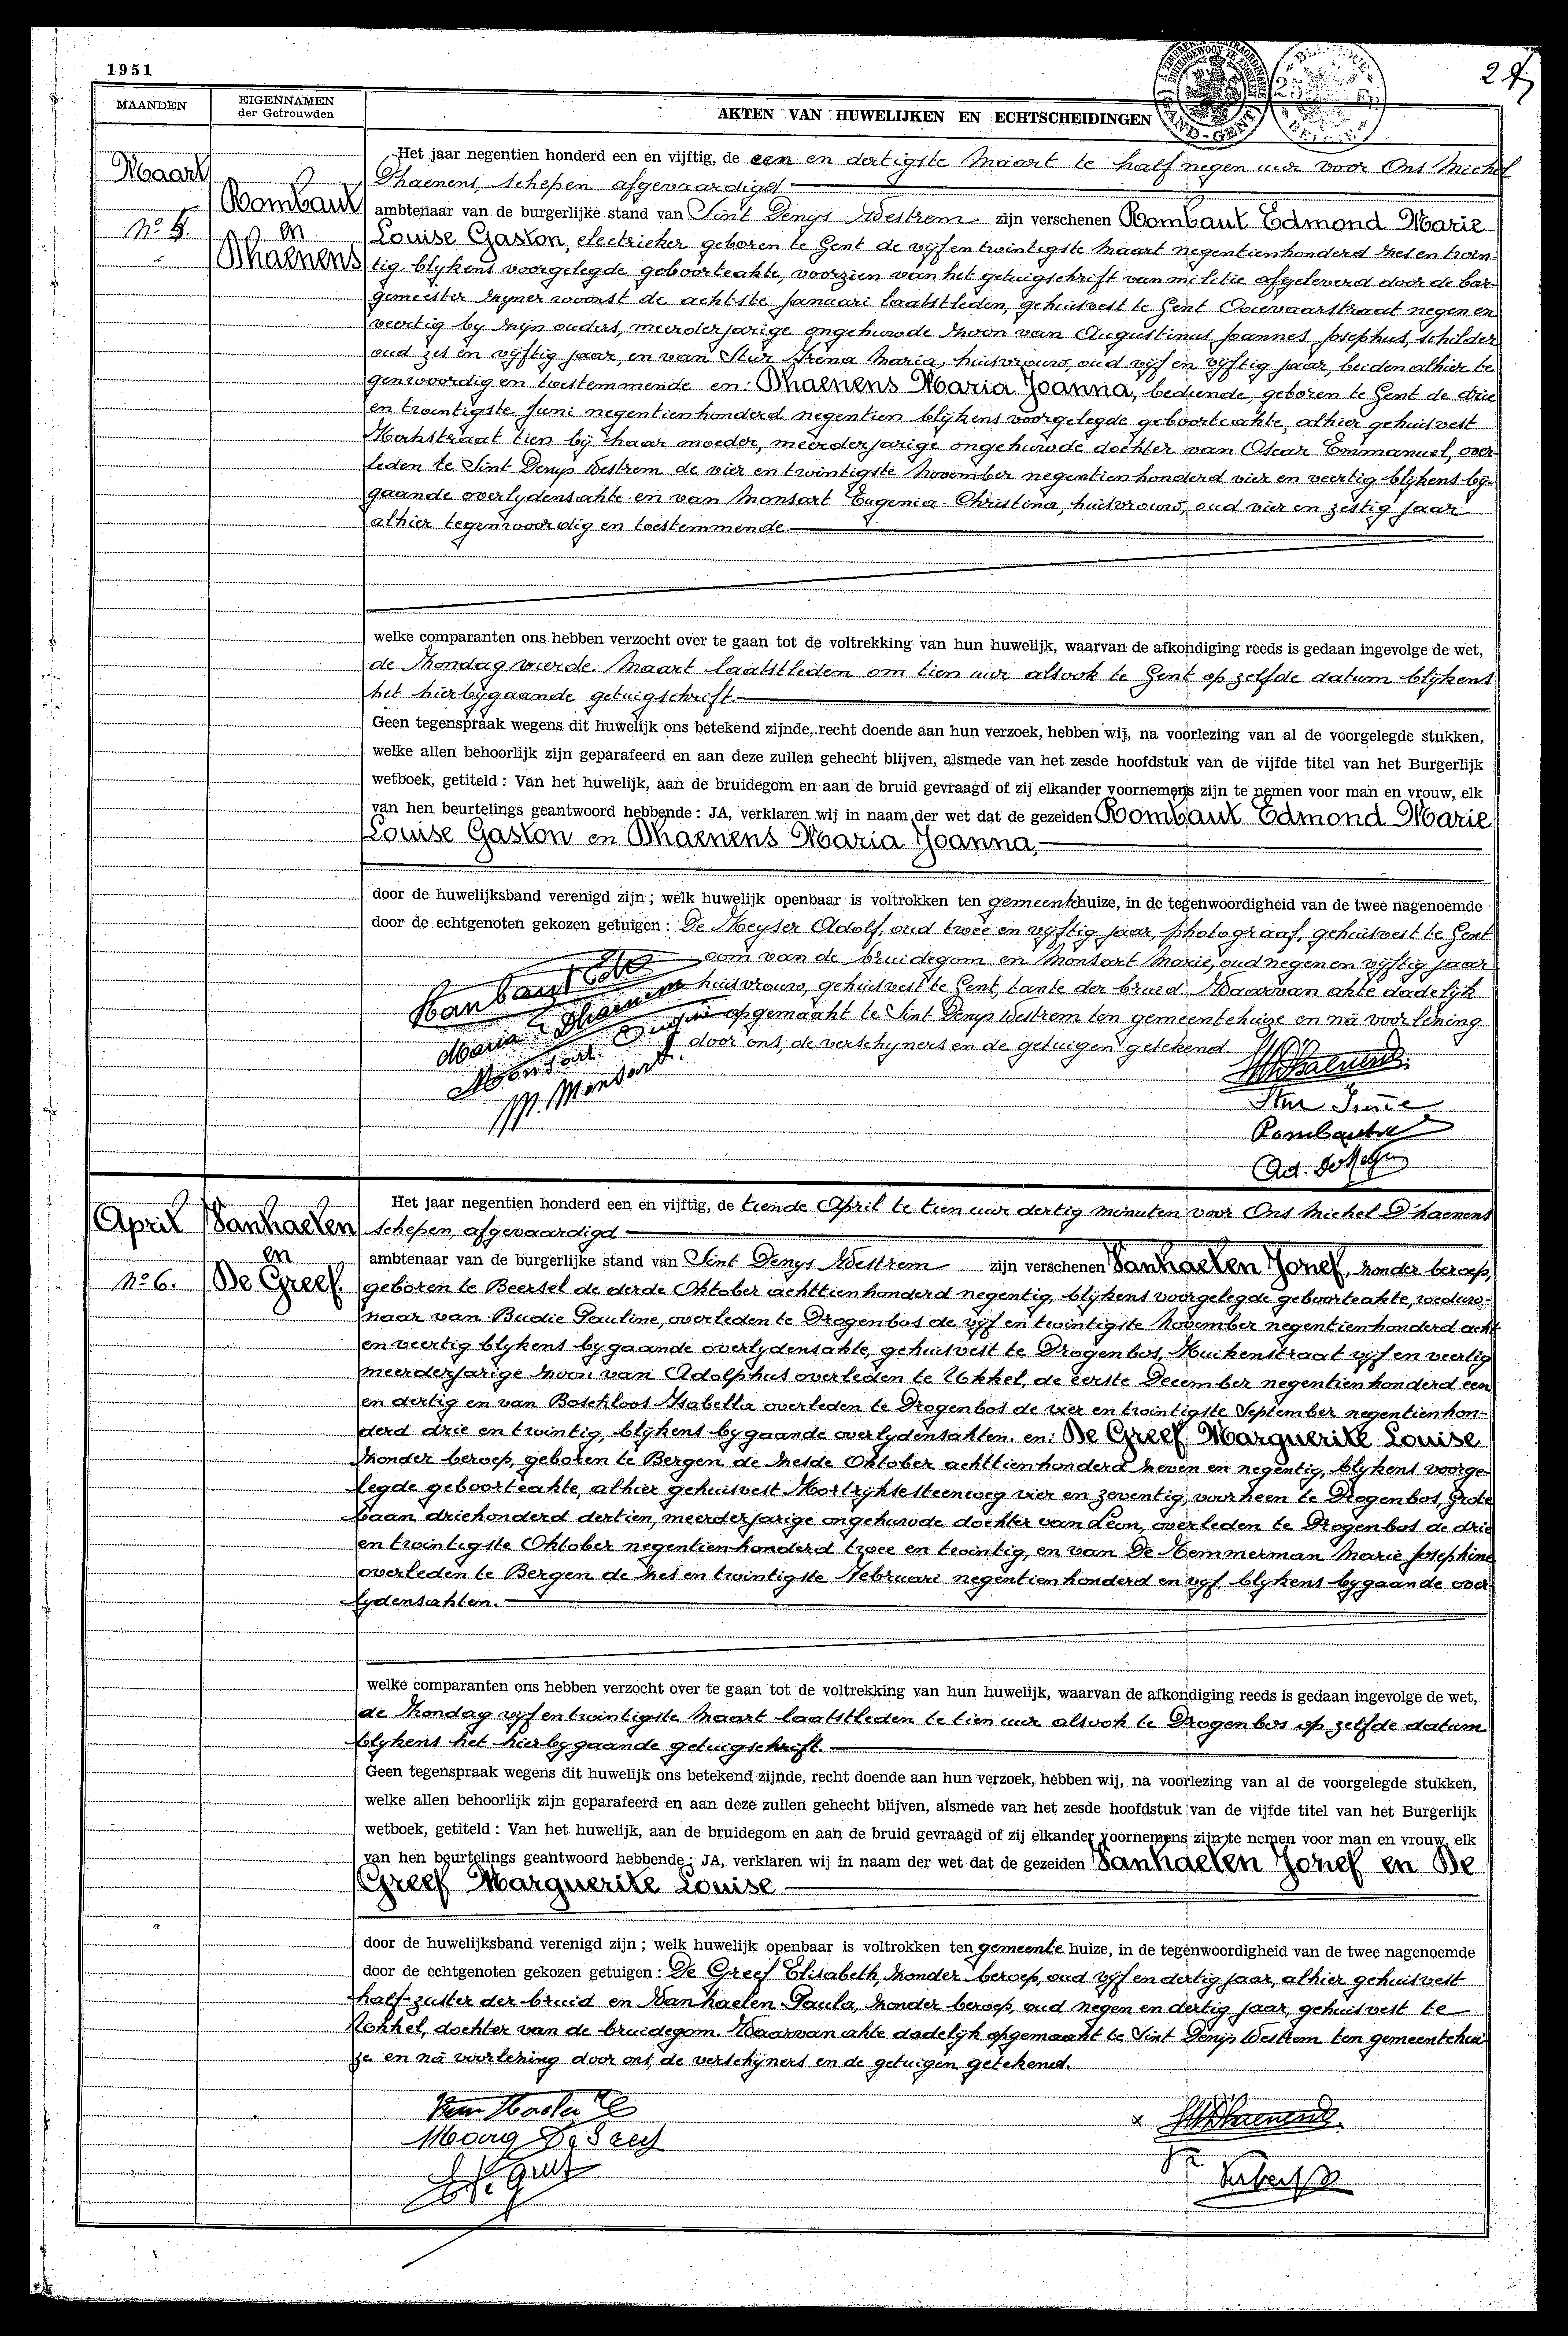 1951
MAANDEN
EIGENNAMEN
der Getrouwden
AKTEN VAN HUWELIJKEN EN ECHTSCHEIDINGEN
GAND-GENT
BELGIE
Maart
Rombaut
en
Dhaenens
No 5.
Het jaar negentien honderd een en vijftig, de een en dertigste Maart te half negen uur voor Ons Michel
Dhaenens, schepen afgevaardigd
ambtenaar van de burgerlijke stand van Sint Denys Westrem zijn verschenen Rombaut Edmond Marie
Louise Gaston, electrieker geboren te Gent de vijfentwintigste Maart negentienhonderd zes en twin-
tig, blijkens voorgelegde geboorteakte, voorzien van het getuigschrift van militie afgeleverd door de bur-
gemeester zijner woonst de achtste Januari laatstleden, gehuisvest te Gent Ooievaarstraat negen en
veertig bij zijn ouders, meerderjarige ongehuwde zoon van Augustinus Joannes Josephus, schilder
oud zes en vijftig jaar, en van Stur Irena Maria, huisvrouw, oud vijf en vijftig jaar, beiden alhier te
genwoordig en toestemmende en: Dhaenens Maria Joanna, bediende, geboren te Gent de drie
en twintigste Juni negentienhonderd negentien blijkens voorgelegde geboorteakte, alhier gehuisvest
Kerkstraat tien bij haar moeder, meerderjarige ongehuwde dochter van Oscar Emmanuel, over-
leden te Sint Denys Westrem de vier en twintigste November negentienhonderd vier en veertig blijkens bij-
gaande overlydensakte en van Monsart Eugenia Christina, huisvrouw, oud vier en zestig jaar
alhier tegenwoordig en toestemmende.
welke comparanten ons hebben verzocht over te gaan tot de voltrekking van hun huwelijk, waarvan de afkondiging reeds is gedaan ingevolge de wet,
de Zondag vierde Maart laatstleden om tien uur alsook te Gent op zelfde datum blijkens
het hierbijgaande getuigschrift.
Geen tegenspraak wegens dit huwelijk ons betekend zijnde, recht doende aan hun verzoek, hebben wij, na voorlezing van al de voorgelegde stukken,
welke allen behoorlijk zijn geparafeerd en aan deze zullen gehecht blijven, alsmede van het zesde hoofdstuk van de vijfde titel van het Burgerlijk
wetboek, getiteld : Van het huwelijk, aan de bruidegom en aan de bruid gevraagd of zij elkander voornemens zijn te nemen voor man en vrouw, elk
van hen beurtelings geantwoord hebbende : JA, verklaren wij in naam der wet dat de gezeiden Rombaut Edmond Marie
Louise Gaston en Dhaenens Maria Joanna,
door de huwelijksband verenigd zijn ; welk huwelijk openbaar is voltrokken ten gemeentehuize, in de tegenwoordigheid van de twee nagenoemde
door de echtgenoten gekozen getuigen : De Keyser Adolf, oud twee en vijftig jaar, photograaf, gehuisvest te Gent
oom van de bruidegom en Monsart Marie, oud negen en vijftig jaar
huisvrouw, gehuisvest te Gent, tante der bruid. Waarvan akte dadelijk
opgemaakt te Sint Denys Westrem ten gemeentehuize en na voorlezing
door ons, de verschijners en de getuigen getekend.
Maria Dhaenens
M. Monsart
Stur Irène
April
Vanhaelen
en
De Greef.
No 6.
Het jaar negentien honderd een en vijftig, de tiende April te tien uur dertig minuten voor Ons Michel D'haenens
schepen, afgevaardigd
ambtenaar van de burgerlijke stand van Sint Denys Westrem zijn verschenen Vanhaelen Jozef, zonder beroep,
geboren te Beersel de derde Oktober achttienhonderd negentig, blijkens voorgelegde geboorteakte, weduw-
naar van Budie Pauline, overleden te Drogenbos de vijf en twintigste November negentienhonderd acht
en veertig blijkens bijgaande overlydensakte, gehuisvest te Drogenbos, Kuikenstraat vijf en veertig
meerderjarige zoon van Adolphus overleden te Ukkel, de eerste December negentienhonderd een
en dertig en van Boschloos Isabella overleden te Drogenbos de vier en twintigste September negentienhon-
derd drie en twintig, blijkens bijgaande overlydensakten. en: De Greef Marguerite Louise
zonder beroep, geboren te Bergen de zesde Oktober achttienhonderd zeven en negentig, blijkens voorge-
legde geboorteakte, alhier gehuisvest Kortrijksesteenweg vier en zeventig, voorheen te Drogenbos, Grote
baan driehonderd dertien, meerderjarige ongehuwde dochter van Leon, overleden te Drogenbos de drie
en twintigste Oktober negentienhonderd twee en twintig, en van De Kemmerman Marie Josephine
overleden te Bergen de zes en twintigste Februari negentienhonderd en vijf, blijkens bijgaande over
lydensakten.
welke comparanten ons hebben verzocht over te gaan tot de voltrekking van hun huwelijk, waarvan de afkondiging reeds is gedaan ingevolge de wet,
de Zondag vijf en twintigste Maart laatstleden te tien uur alsook te Drogenbos op zelfde datum
blijkens het hierbijgaande getuigschrift.
Geen tegenspraak wegens dit huwelijk ons betekend zijnde, recht doende aan hun verzoek, hebben wij, na voorlezing van al de voorgelegde stukken,
welke allen behoorlijk zijn geparafeerd en aan deze zullen gehecht blijven, alsmede van het zesde hoofdstuk van de vijfde titel van het Burgerlijk
wetboek, getiteld : Van het huwelijk, aan de bruidegom en aan de bruid gevraagd of zij elkander voornemens zijn te nemen voor man en vrouw, elk
van hen beurtelings geantwoord hebbende : JA, verklaren wij in naam der wet dat de gezeiden Vanhaelen Jozef en De
Greef Marguerite Louise
door de huwelijksband verenigd zijn ; welk huwelijk openbaar is voltrokken ten gemeente huize, in de tegenwoordigheid van de twee nagenoemde
door de echtgenoten gekozen getuigen : De Greef Elisabeth, zonder beroep, oud vijf en dertig jaar, alhier gehuisvest
half-zuster der bruid en Vanhaelen Paula, zonder beroep, oud negen en dertig jaar, gehuisvest te
Ukkel, dochter van de bruidegom. Waarvan akte dadelijk opgemaakt te Sint Denijs Westrem ten gemeentehui
ze en na voorlezing door ons, de verschijners en de getuigen getekend.